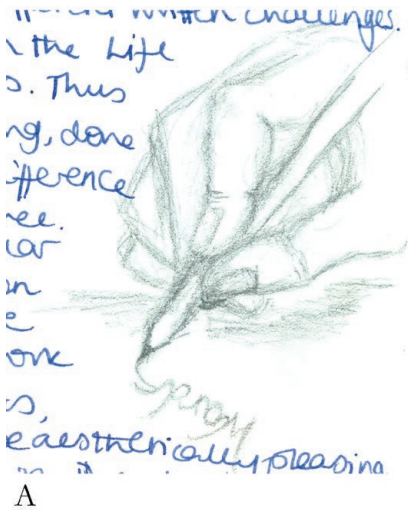 written challenges.
the Life
s. Thus
ng, done
fference
ee.
on
e
ork
s,
e aesthetically pleasing
A